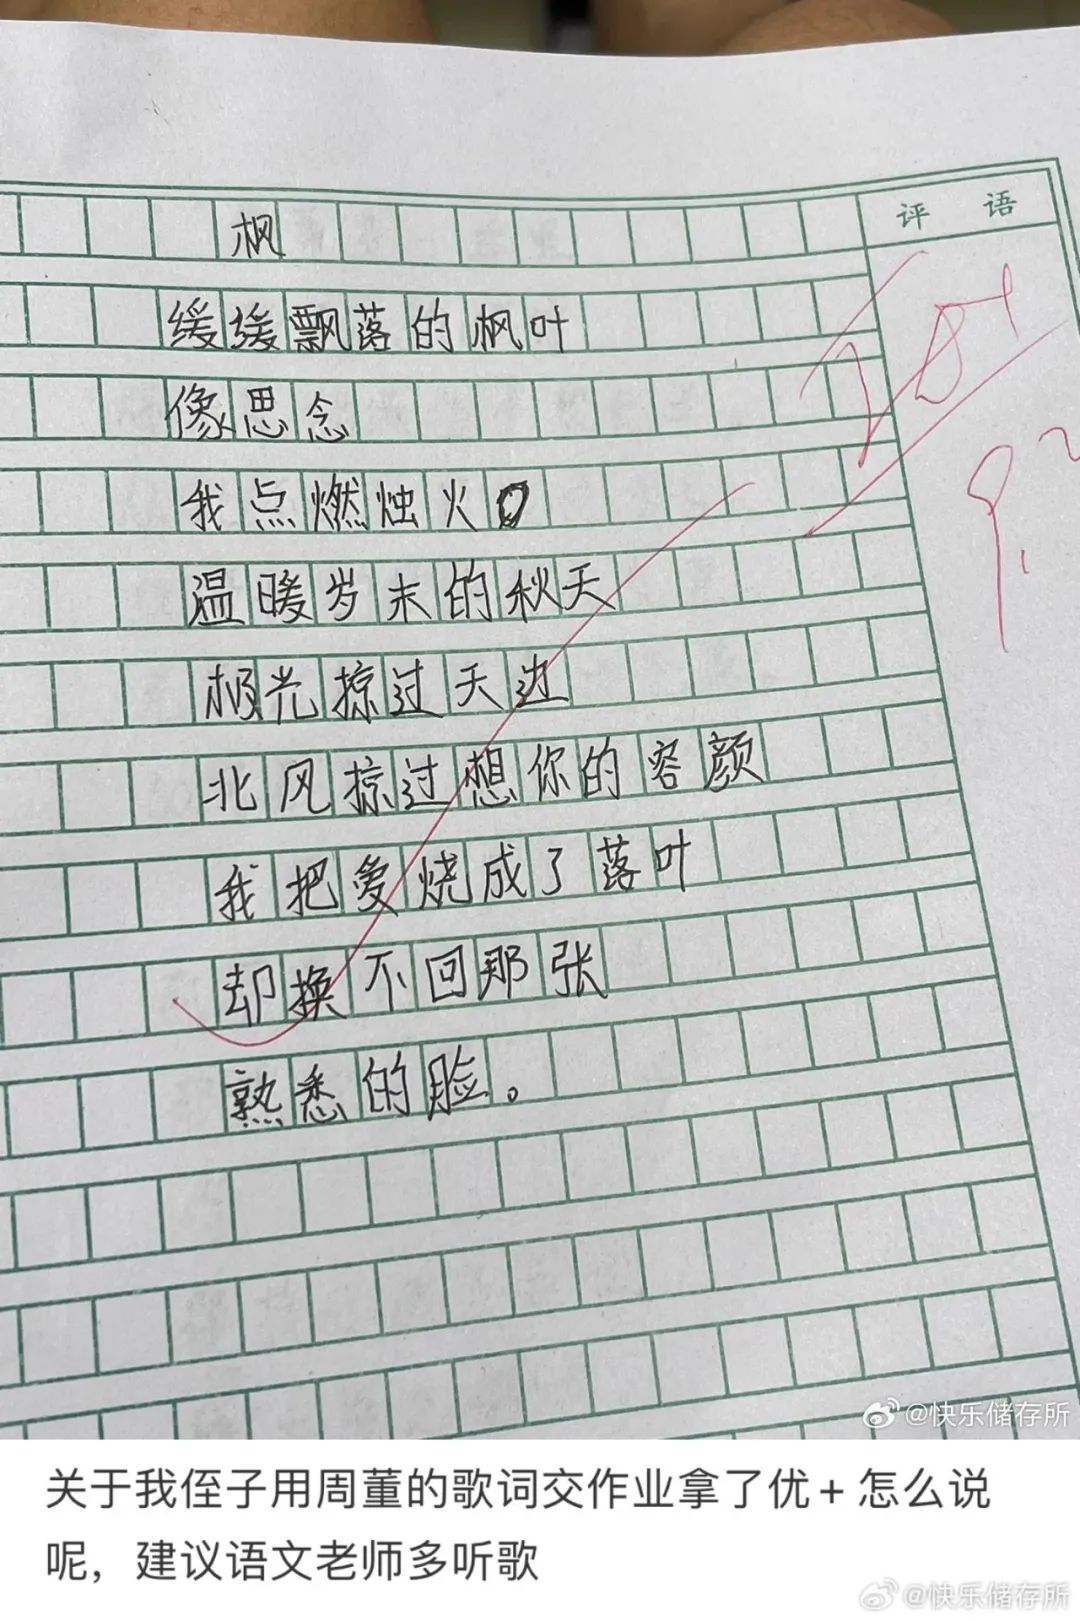 评语
枫
缓缓飘落的枫叶
像思念
我点燃烛火
温暖岁末的秋天
极光掠过天边
北风掠过想你的容颜
我把爱烧成了落叶
却换不回那张
熟悉的脸。
9.2
@快乐储存所
关于我侄子用周董的歌词交作业拿了优+怎么说
呢，建议语文老师多听歌
@快乐储存所